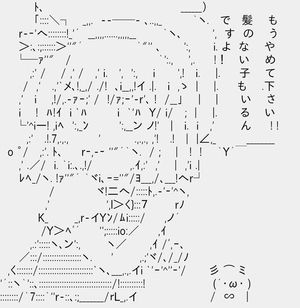 もうやめて下さい!!
髪のない子もいるん
ですよ!!